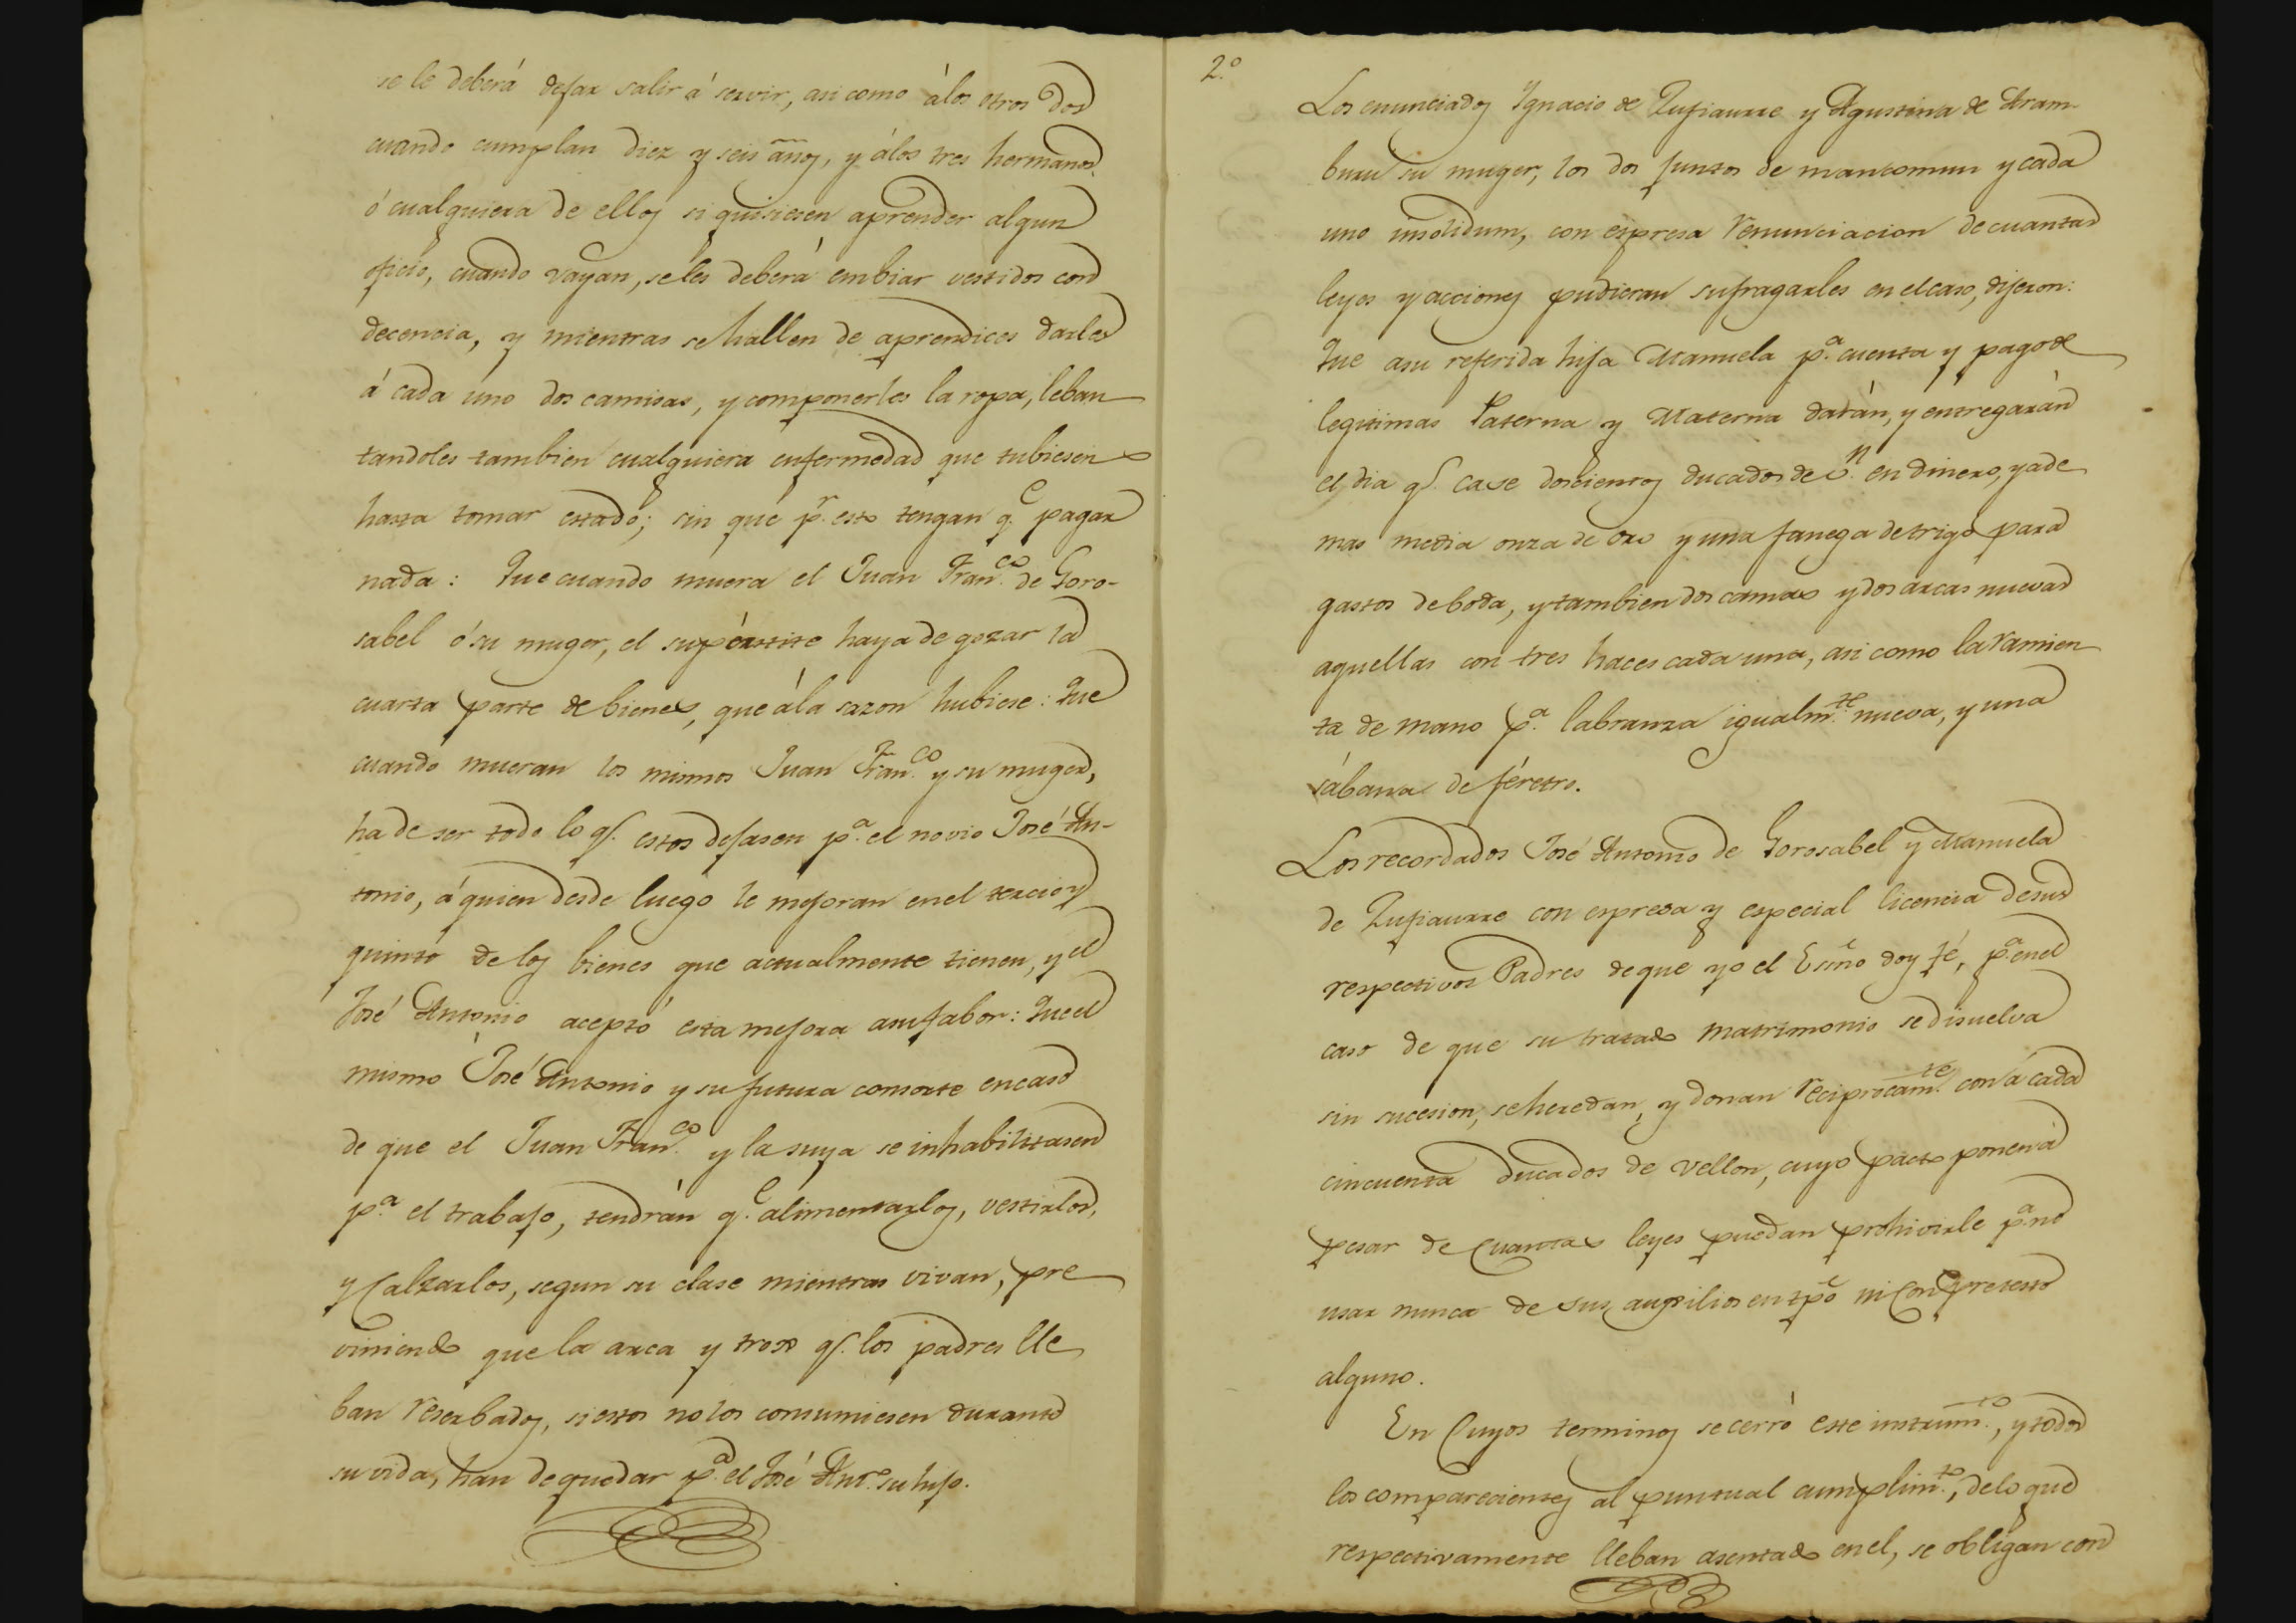 se le deberá dejar salir á servir, asi como álos otros dos
cuando cumplan diez y seis años, y álos tres hermanos
ó cualquiera de ellos si quisiesen aprender algun
oficio, cuando vayan, seles deberá embiar vestidos con
decencia, y mientras se hallen de aprendices darles
á cada uno dos camisas, y componerles la ropa, leban
tandoles tambien cualquiera enfermedad que tubiesen
hasta tomar estado; sin que pr. esto tengan qe. pagar
nada: Que cuando muera el Juan Franco. de Goro-
sabel ó su muger, el supérstite haya de gozar la
cuarta parte de bienes, que ála sazon hubiese: Que
cuando mueran los mismos Juan Franco. y su muger,
ha de ser todo lo q. estos dejasen pa. el novio José An-
tonio, á quien desde luego le mejoran enel tercio y
quinto delos bienes que actualmente tienen, y el
José Antonio aceptó esta mejora asu fabor: Que el
mismo José Antonio y su futura consorte encaso
de que el Juan Franco. y la suya se inhabilitasen
pa. el trabajo, tendrán qe. alimentarlos, vestirlos,
y Calzarlos, segun su clase mientras vivan, pre
viniendo que la arca y trox q. los padres lle
ban reserbados, si estos nolos consumiesen durante
su vida, han de quedar pa. el José Anto. su hijo.
2.o
Los enunciados Ygnacio de Zufiaurre y Agustina de Aram-
buru su muger, los dos juntos de mancomun y cada
uno insolidum, con espresa renunciacion de cuantas
leyes y acciones pudieran sufragarles en el caso, dijeron:
Que asu referida hija Manuela pa. cuenta y pago de
legitimas Paterna y Materna darán, y entregarán
el dia q. case doscientos ducados de vn. en dinero, y ade
mas media onza de oro y una fanega de trigo para
gastos de boda, y tambien dos camas y dos arcas nuevas
aquellas con tres haces cada una, asi como la ramien
ta de mano pa. labranza igualmte. nueva, y una
sábana de féretro.
Los recordados José Antonio de Gorosabel y Manuela
de Zufiaurre con espresa y especial licencia desus
respectivos Padres de que yo el Esno doy fé, pa. enel
caso de que su tratado matrimonio se disuelva
sin sucesion, se heredan, y donan reciprocamte. con á cada
cincuenta ducados de vellon, cuyo pacto ponen á
pesar de Cuantas leyes puedan prohivirle pa. no
usar nunca de sus auxilios en tpo ni Con pretesto
alguno.
En Cuyos terminos se cerró este instrumto., y todos
los comparecientes al puntual cumplimto., delo que
respectivamente lleban asentado enel, se obligan con